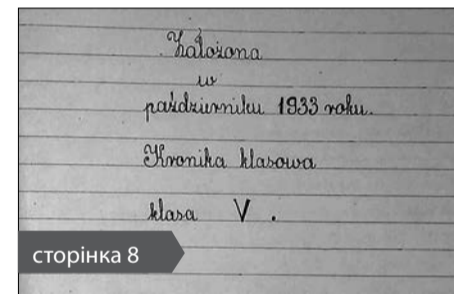 Założona
w
październiku 1933 roku.
Kronika klasowa
klasa V.
сторінка 8